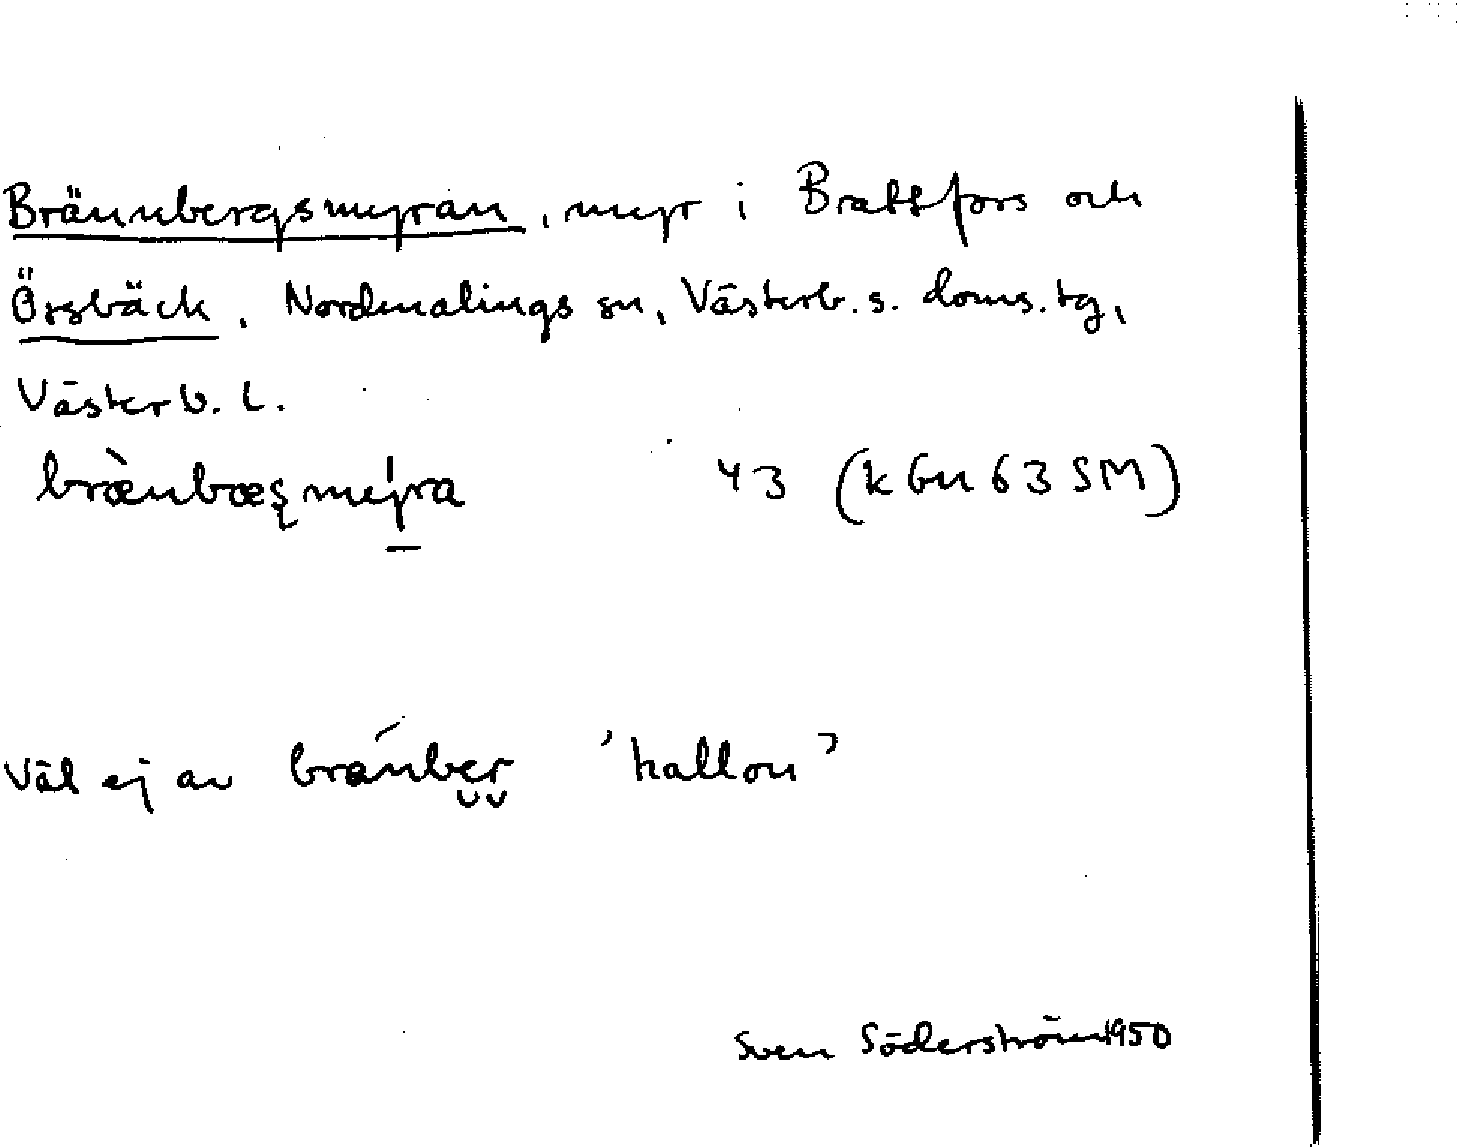 Brännbergsmyran, myr i Brattfors och
Örsbäck, Nordmalings sn, Västerb. s. doms. tg,
Västerb. L.
brænbæsmyra 43 (k Gn 63 SM)
Väl ej av brænber 'hallon'
Sven Söderström 1950